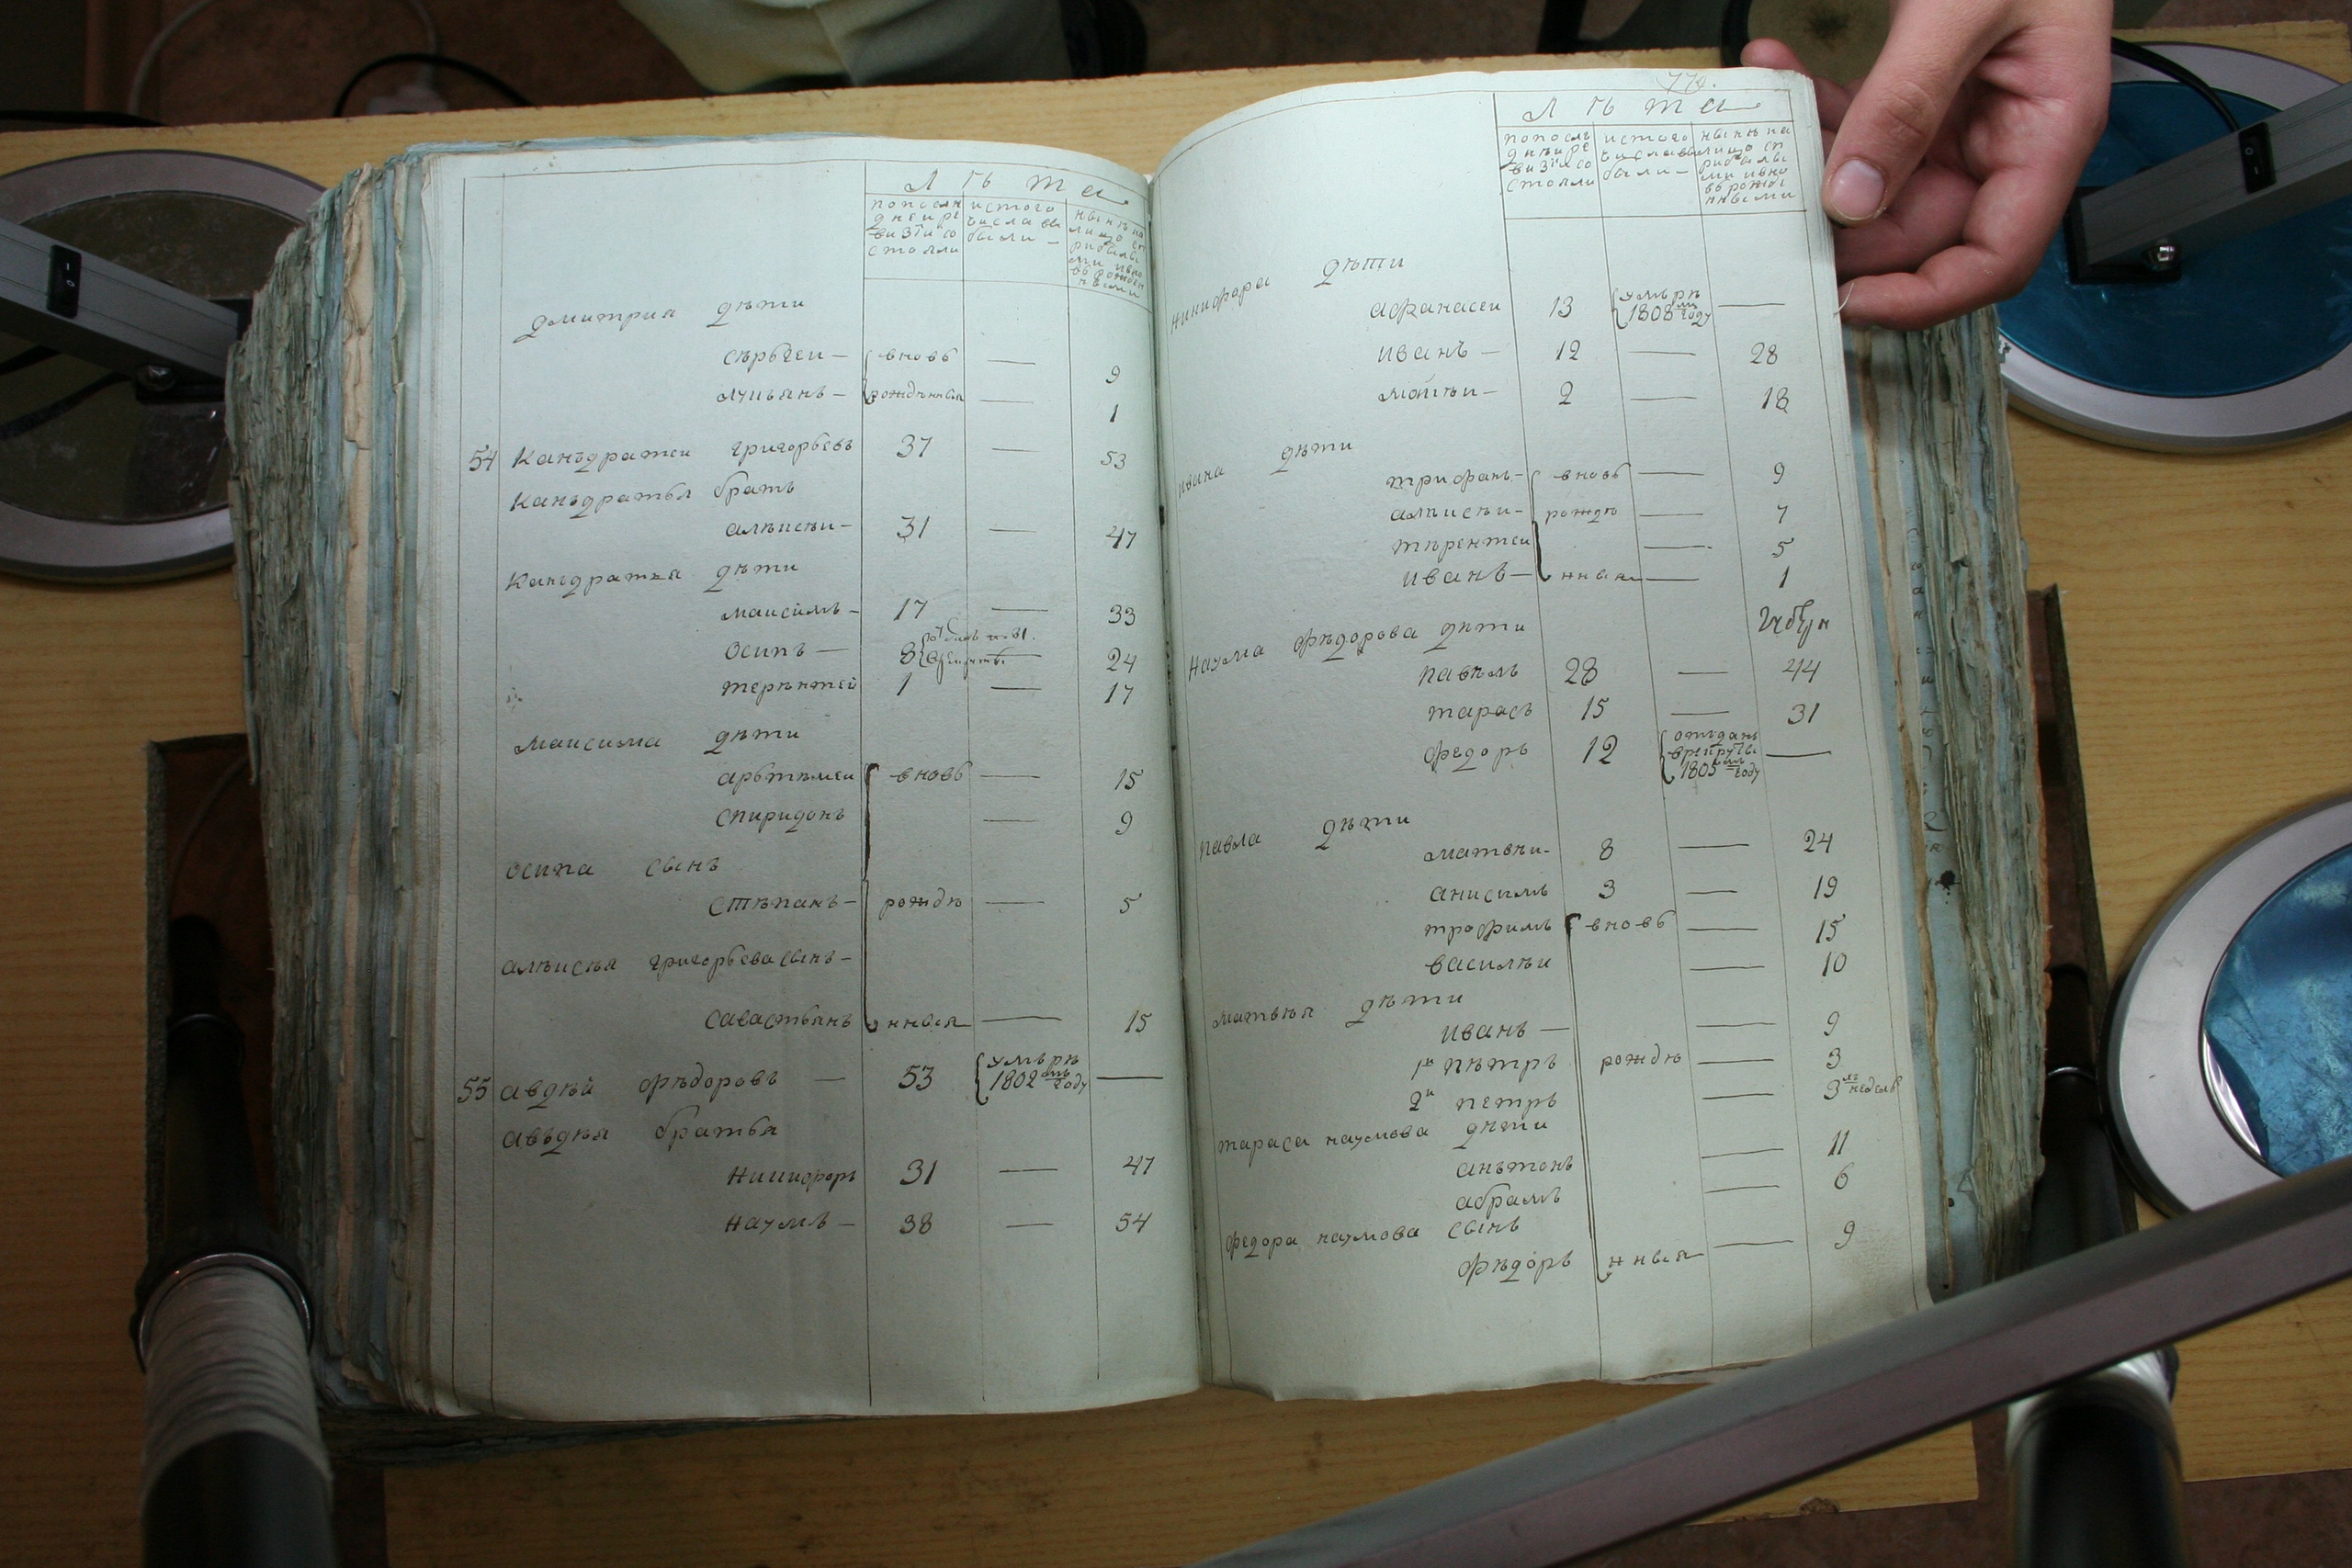 Л ѣ т а
по послѣ
дней ре
визіи со
стояли
ис того
числа вы
были —
нынѣ на
лицо съ
прибылы
ми и вно
вь рожден
ными
дмитрия дѣти
сѣрьгеи — вновь — 9
лукьянъ — рождѣнныя — 1
54 Канъдратеи григорьевъ 37 — 53
Канъдратья братъ
алѣксѣи — 31 — 47
Канъдратья дѣти
максимъ — 17 — 33
осипъ — 8 — 24
терѣнтей 1 — 17
максима дѣти
арьтѣмеи вновь — 15
спиридонъ — 9
осипа сынъ
стѣпанъ — рождѣ — 5
алѣксѣя григорьева сынъ —
савастьянъ нныя — 15
55 авдѣй фѣдоровъ — 53 умьрѣ 1802мъ году —
авъдѣя братья
никифоръ 31 — 47
наумъ — 38 — 54
Л ѣ т а
по послѣ
днѣи ре
визіи со
стояли
ис того
числа вы
были —
нынѣ на
лицо сп
рибылы
ми и вно
вь рожде
нными
никифора дѣти
афанасеи 13 умьрѣ 1808мъ году —
иванъ — 12 — 28
мокѣи — 2 — 18
ивана дѣти
трифанъ — вновь — 9
алѣксѣи — рождѣ — 7
тѣрентеи — 5
иванъ — нныя — 1
наума фѣдорова дѣти
павѣлъ 28 — 44
тарасъ 15 — 31
федоръ 12 отъданъ
врекруты
1805мъ году —
павла дѣти
матвѣи — 8 — 24
анисимъ 3 — 19
трофимъ вновь — 15
василѣи — 10
матвѣя дѣти
иванъ — — 9
1й пѣтръ рождѣ — 3
2й петръ — 3хъ недель
тараса наумова дѣти
анътонъ — 11
абрамъ — 6
федора наумова сынъ
фѣдоръ нныя — 9